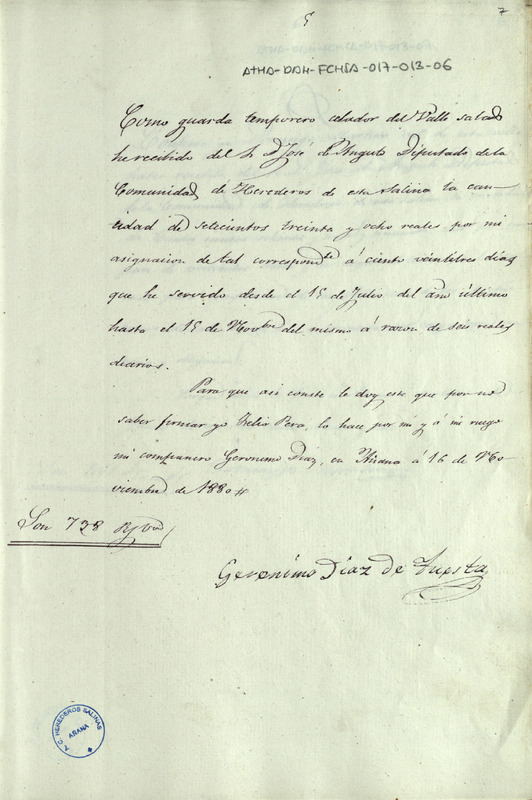 7
ATHA-DAH-FCHSA-017-013-06
Como guarda temporero celador del Valle salado
he recibido del Sr. D. José de Angulo Diputado de la
Comunidad de Herederos de esta Salina la can-
tidad de setecientos treinta y ocho reales por mi
asignacion de tal correspondte á ciento veintitres dias
que he servido desde el 15 de Julio del año último
hasta el 15 de Novbre del mismo á razon de seis reales
diarios.
Para que asi conste le doy este que por no
saber firmar yo Felix Pera, lo hace por mi y á mi ruego
mi compañero Geronimo Diaz, en Añana á 16 de No-
viembre de 1880
Son 738 Rs von
Geronimo Diaz de Tuesta
A.C. HEREDEROS SALINAS
AÑANA